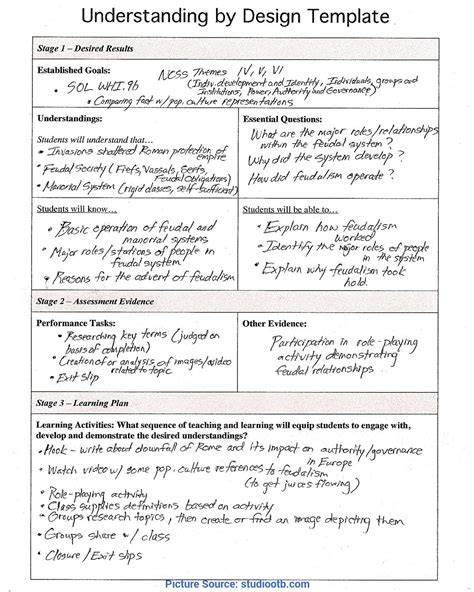 Understanding by Design Template
Stage 1 – Desired Results
Established Goals:
• SOL WHI.9b
NCSS Themes IV, V, VI
(Indiv. development and Identity, Individuals, groups and
Institutions, Power, Authority and Governance)
• Comparing fact w/ pop. culture representations
Understandings:
Students will understand that…
• Invasions shattered Roman protection of
empire
• Feudal Society (Fiefs, Vassals, Serfs,
Feudal Obligations)
• Manorial System (rigid classes, self-sufficient)
Essential Questions:
What are the major roles/relationships
within the feudal system?
Why did the system develop?
How did feudalism operate?
Students will know…
• Basic operation of feudal and
manorial systems
• Major roles/stations of people in
feudal system
• Reasons for the advent of feudalism
Students will be able to…
• Explain how feudalism
worked
• Identify the major roles of people
in the system
• Explain why feudalism took
hold.
Stage 2 – Assessment Evidence
Performance Tasks:
• Researching key terms (judged on
basis of completion)
• Creation of or analysis of images/video
related to topic
• Exit slip
Other Evidence:
Participation in role-playing
activity demonstrating
feudal relationships
Stage 3 – Learning Plan
Learning Activities: What sequence of teaching and learning will equip students to engage with,
develop and demonstrate the desired understandings?
• Hook - write about downfall of Rome and its impact on authority/governance
in Europe
• Watch video w/ some pop. culture references to feudalism
(to get juices flowing)
• Role-playing activity
• Class supplies definitions based on activity
• Groups research topics, then create or find an image depicting them
• Groups share w/ class
• Closure / Exit slips
Picture Source: studiootb.com